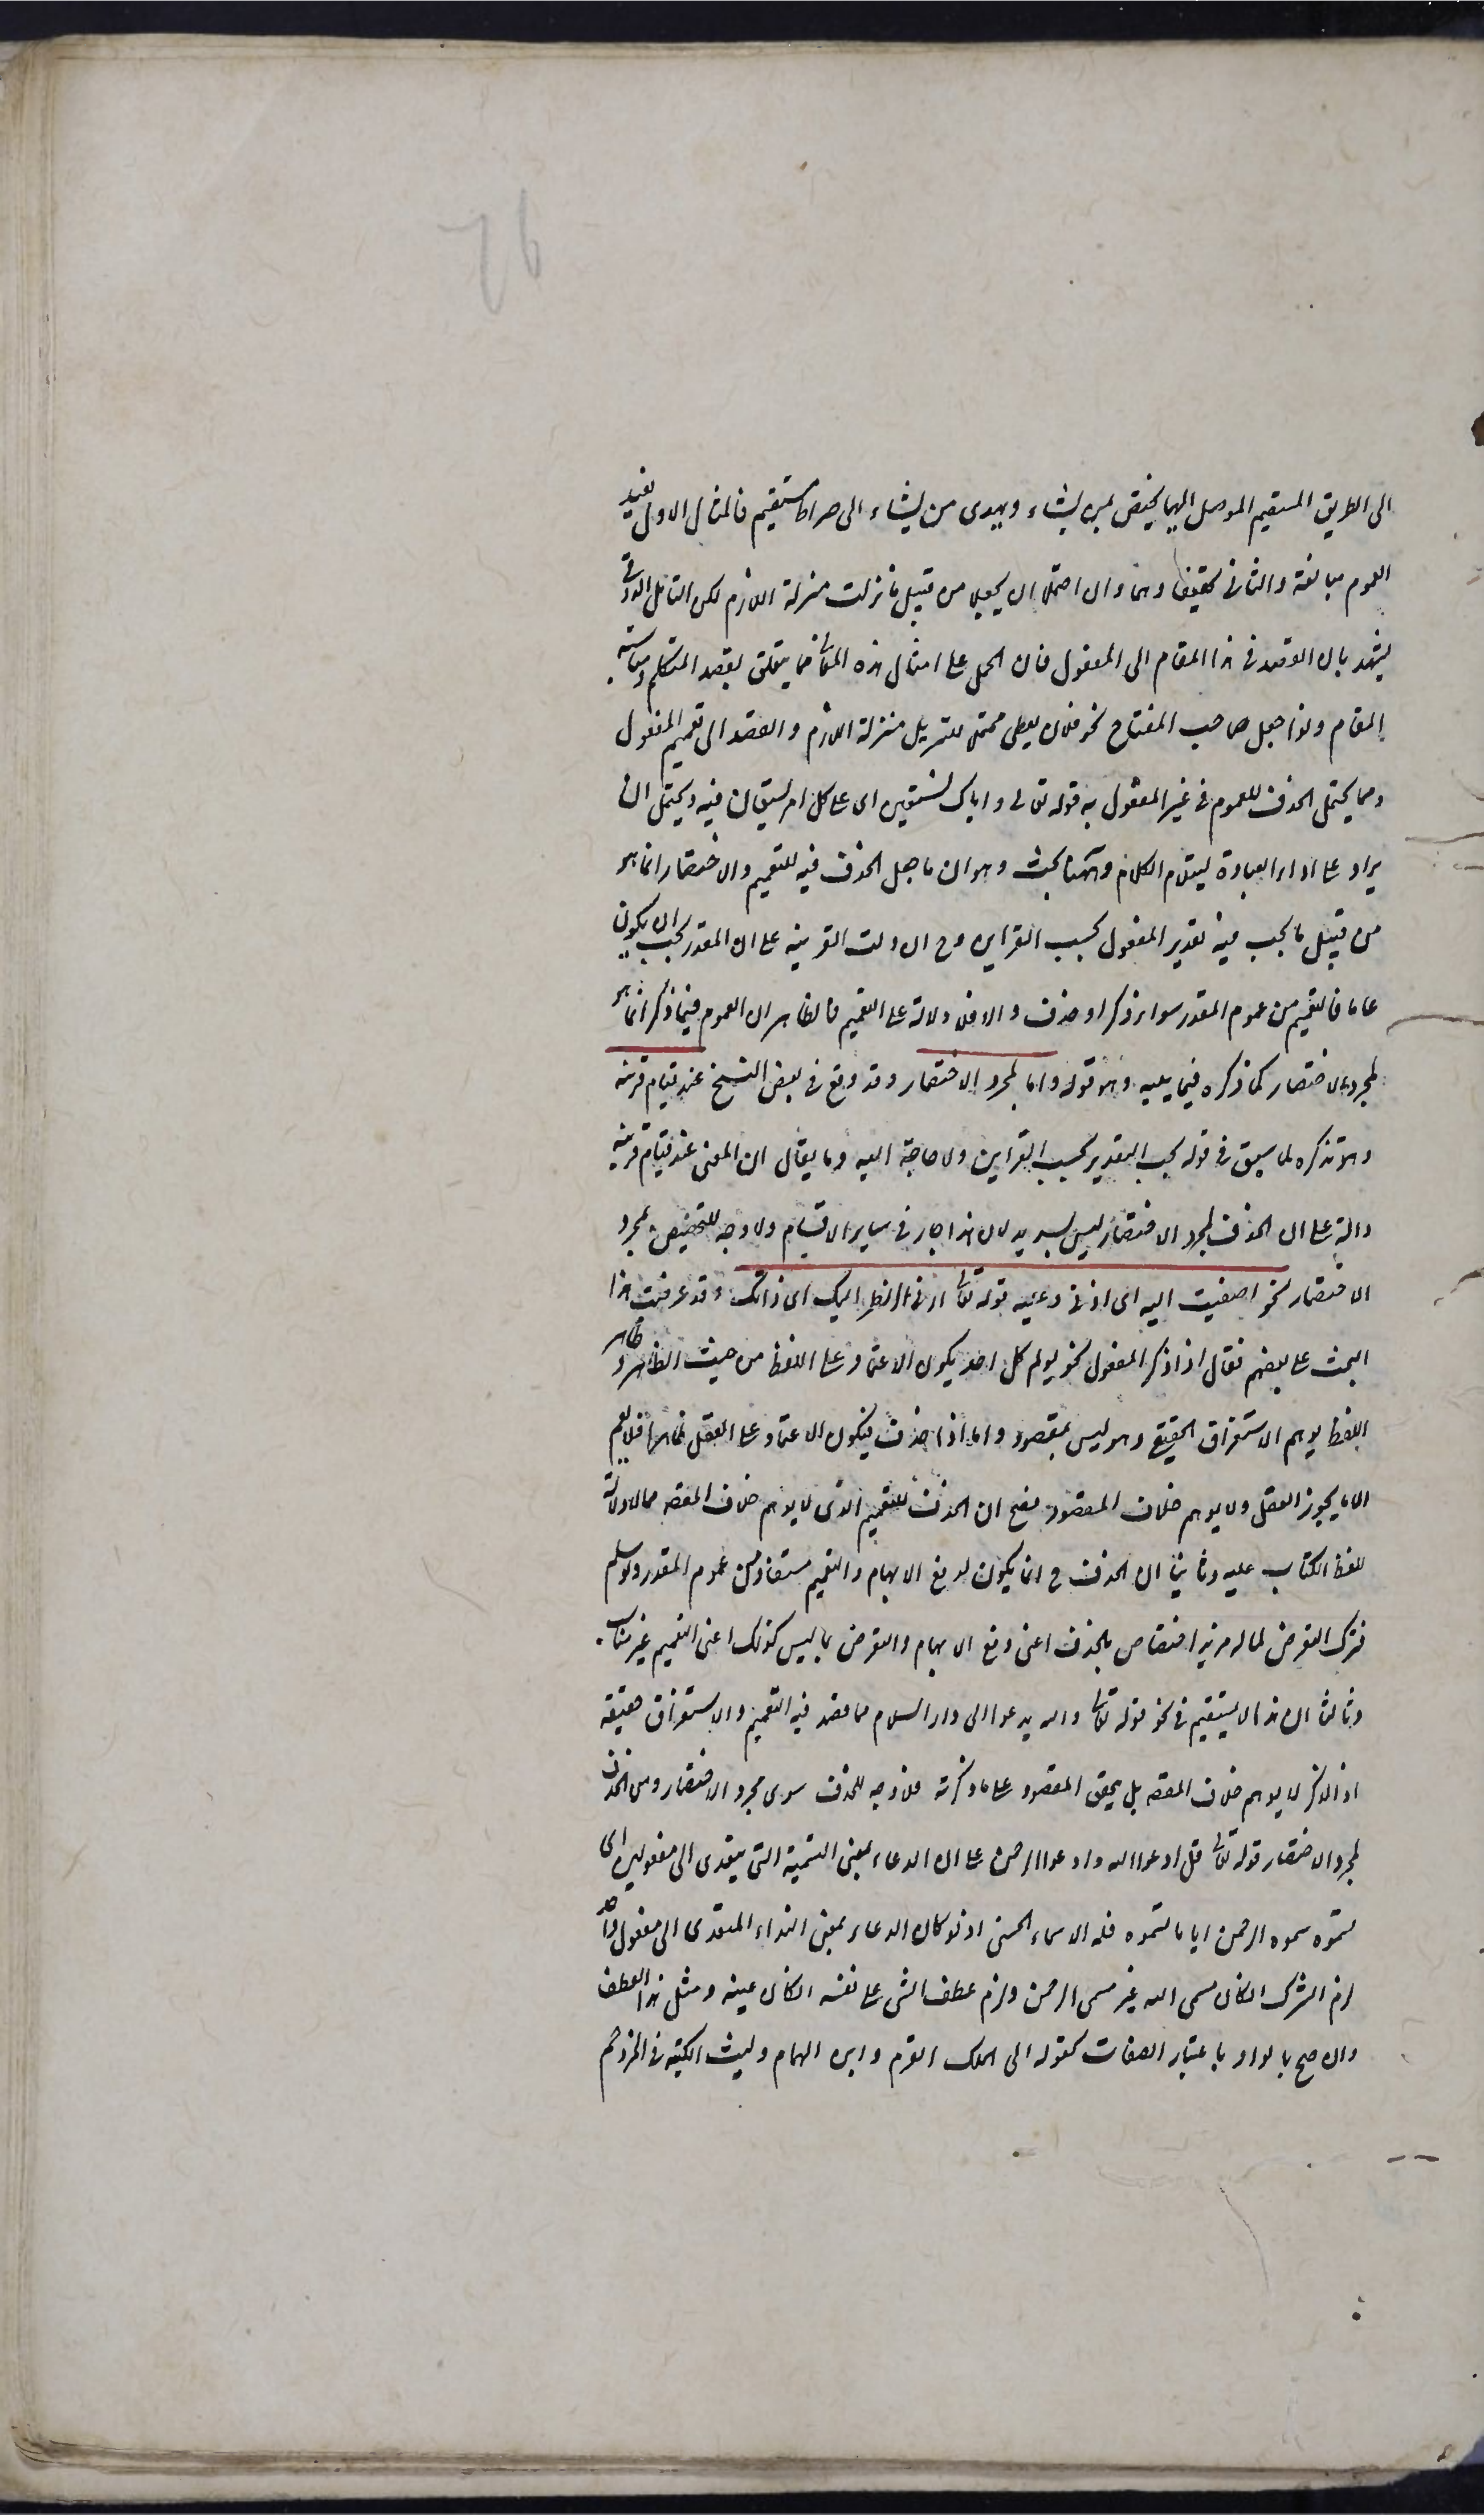 الى الطريق المستقيم الموصل اليها يختص بمن يشاء ويهدى من يشاء الى صراط مستقيم فالمثال الاول يفيد
العموم مبالغة والثانى تحقيقا وهما وان احتملا ان يجعلا من قبيل ما نزلت منزلة اللازم لكن التامل الذوقى
يشهد بان القصد فى هذا المقام الى المفعول فان الحمل على امثال هذه المعانى مما يتعلق بقصد المتكلم ومناسبته
المقام ولذا جعل صاحب المفتاح نحو فلان يعطى محتملا للتنزيل منزلة اللازم والقصد الى تعميم المفعول
ومما يحتمل الحذف للعموم فى غير المفعول به قوله تعالى واياك نستعين اى على كل امر يستعان فيه ويحتمل ان
يراد على اداء العبادة ليتلاءم الكلام وههنا بحث وهو ان ما جعل الحذف فيه للتعميم والاختصار انما هو
من قبيل ما يجب فيه تقدير المفعول بحسب القراين وح ان دلت القرينة على ان المقدر يجب ان يكون
عاما فالتعميم من عموم المقدر سواء ذكر او حذف والا فلا دلالة على التعميم فالظاهر ان العموم فيما ذكر انما هو
لمجرد الاختصار كما ذكره فيما يليه وهو قوله واما لمجرد الاختصار وقد وقع فى بعض النسخ عند قيام قرينة
وهو تذكره لما سبق فى قوله يجب التقدير بحسب القراين ولا حاجة اليه وما يقال ان المعنى عند قيام قرينة
دالة على ان الحذف لمجرد الاختصار ليس بسديد لان هذا جار فى ساير الاقسام ولا وجه للتخصيص بمجرد
الاختصار نحو اصغيت اليه اى اذنى وعليه قوله تعالى ارنى انظر اليك اى ذاتك وقد عرضت هذا
البحث على بعضهم فقال اذا ذكر المفعول نحو يولم كل احد يكون الاعتماد على اللفظ من حيث الظاهر وظاهر
اللفظ يوهم الاستغراق الحقيقى وهو ليس بمقصود واما اذا حذف فيكون الاعتماد على العقل ظاهرا فلا يعم
الا ما يجوز العقل ولا يوهم خلاف المقصود فصح ان الحذف للتعميم الذى لا يوهم خلاف المقصـ مما لا دلالة
للفظ الكتاب عليه وثانيا ان الحذف ح انما يكون لدفع الايهام والتعميم مستفاد من عموم المقدر ولو سلم
فترك التعرض لما له مزيد اختصاص بالحذف اعنى دفع الايهام والتعرض لما ليس كذلك اعنى التعميم غير مناسب
وثالثا ان هذا لا يستقيم فى نحو قوله تعالى والله يدعوا الى دار السلام مما قصد فيه التعميم والاستغراق حقيقة
اذ الذكر لا يوهم خلاف المقصـ بل يحقق المقصود على ما ذكرته فلا وجه للحذف سوى مجرد الاختصار ومن الحذف
لمجرد الاختصار قوله تعالى قل ادعوا الله او ادعوا الرحمن على ان الدعاء بمعنى التسمية التى يتعدى الى مفعولين اى
سموه الرحمن ايا ما تسموه فله الاسماء الحسنى اذ لو كان الدعاء بمعنى النداء المتعدى الى مفعول واحد
لزم الشرك ان كان مسمى الله غير مسمى الرحمن ولزم عطف الشى على نفسه ان كان عينه ومثل هذا العطف
وان صح بالواو باعتبار الصفات كقوله الى الملك القرم وابن الهمام وليث الكتيبة فى المزدحم